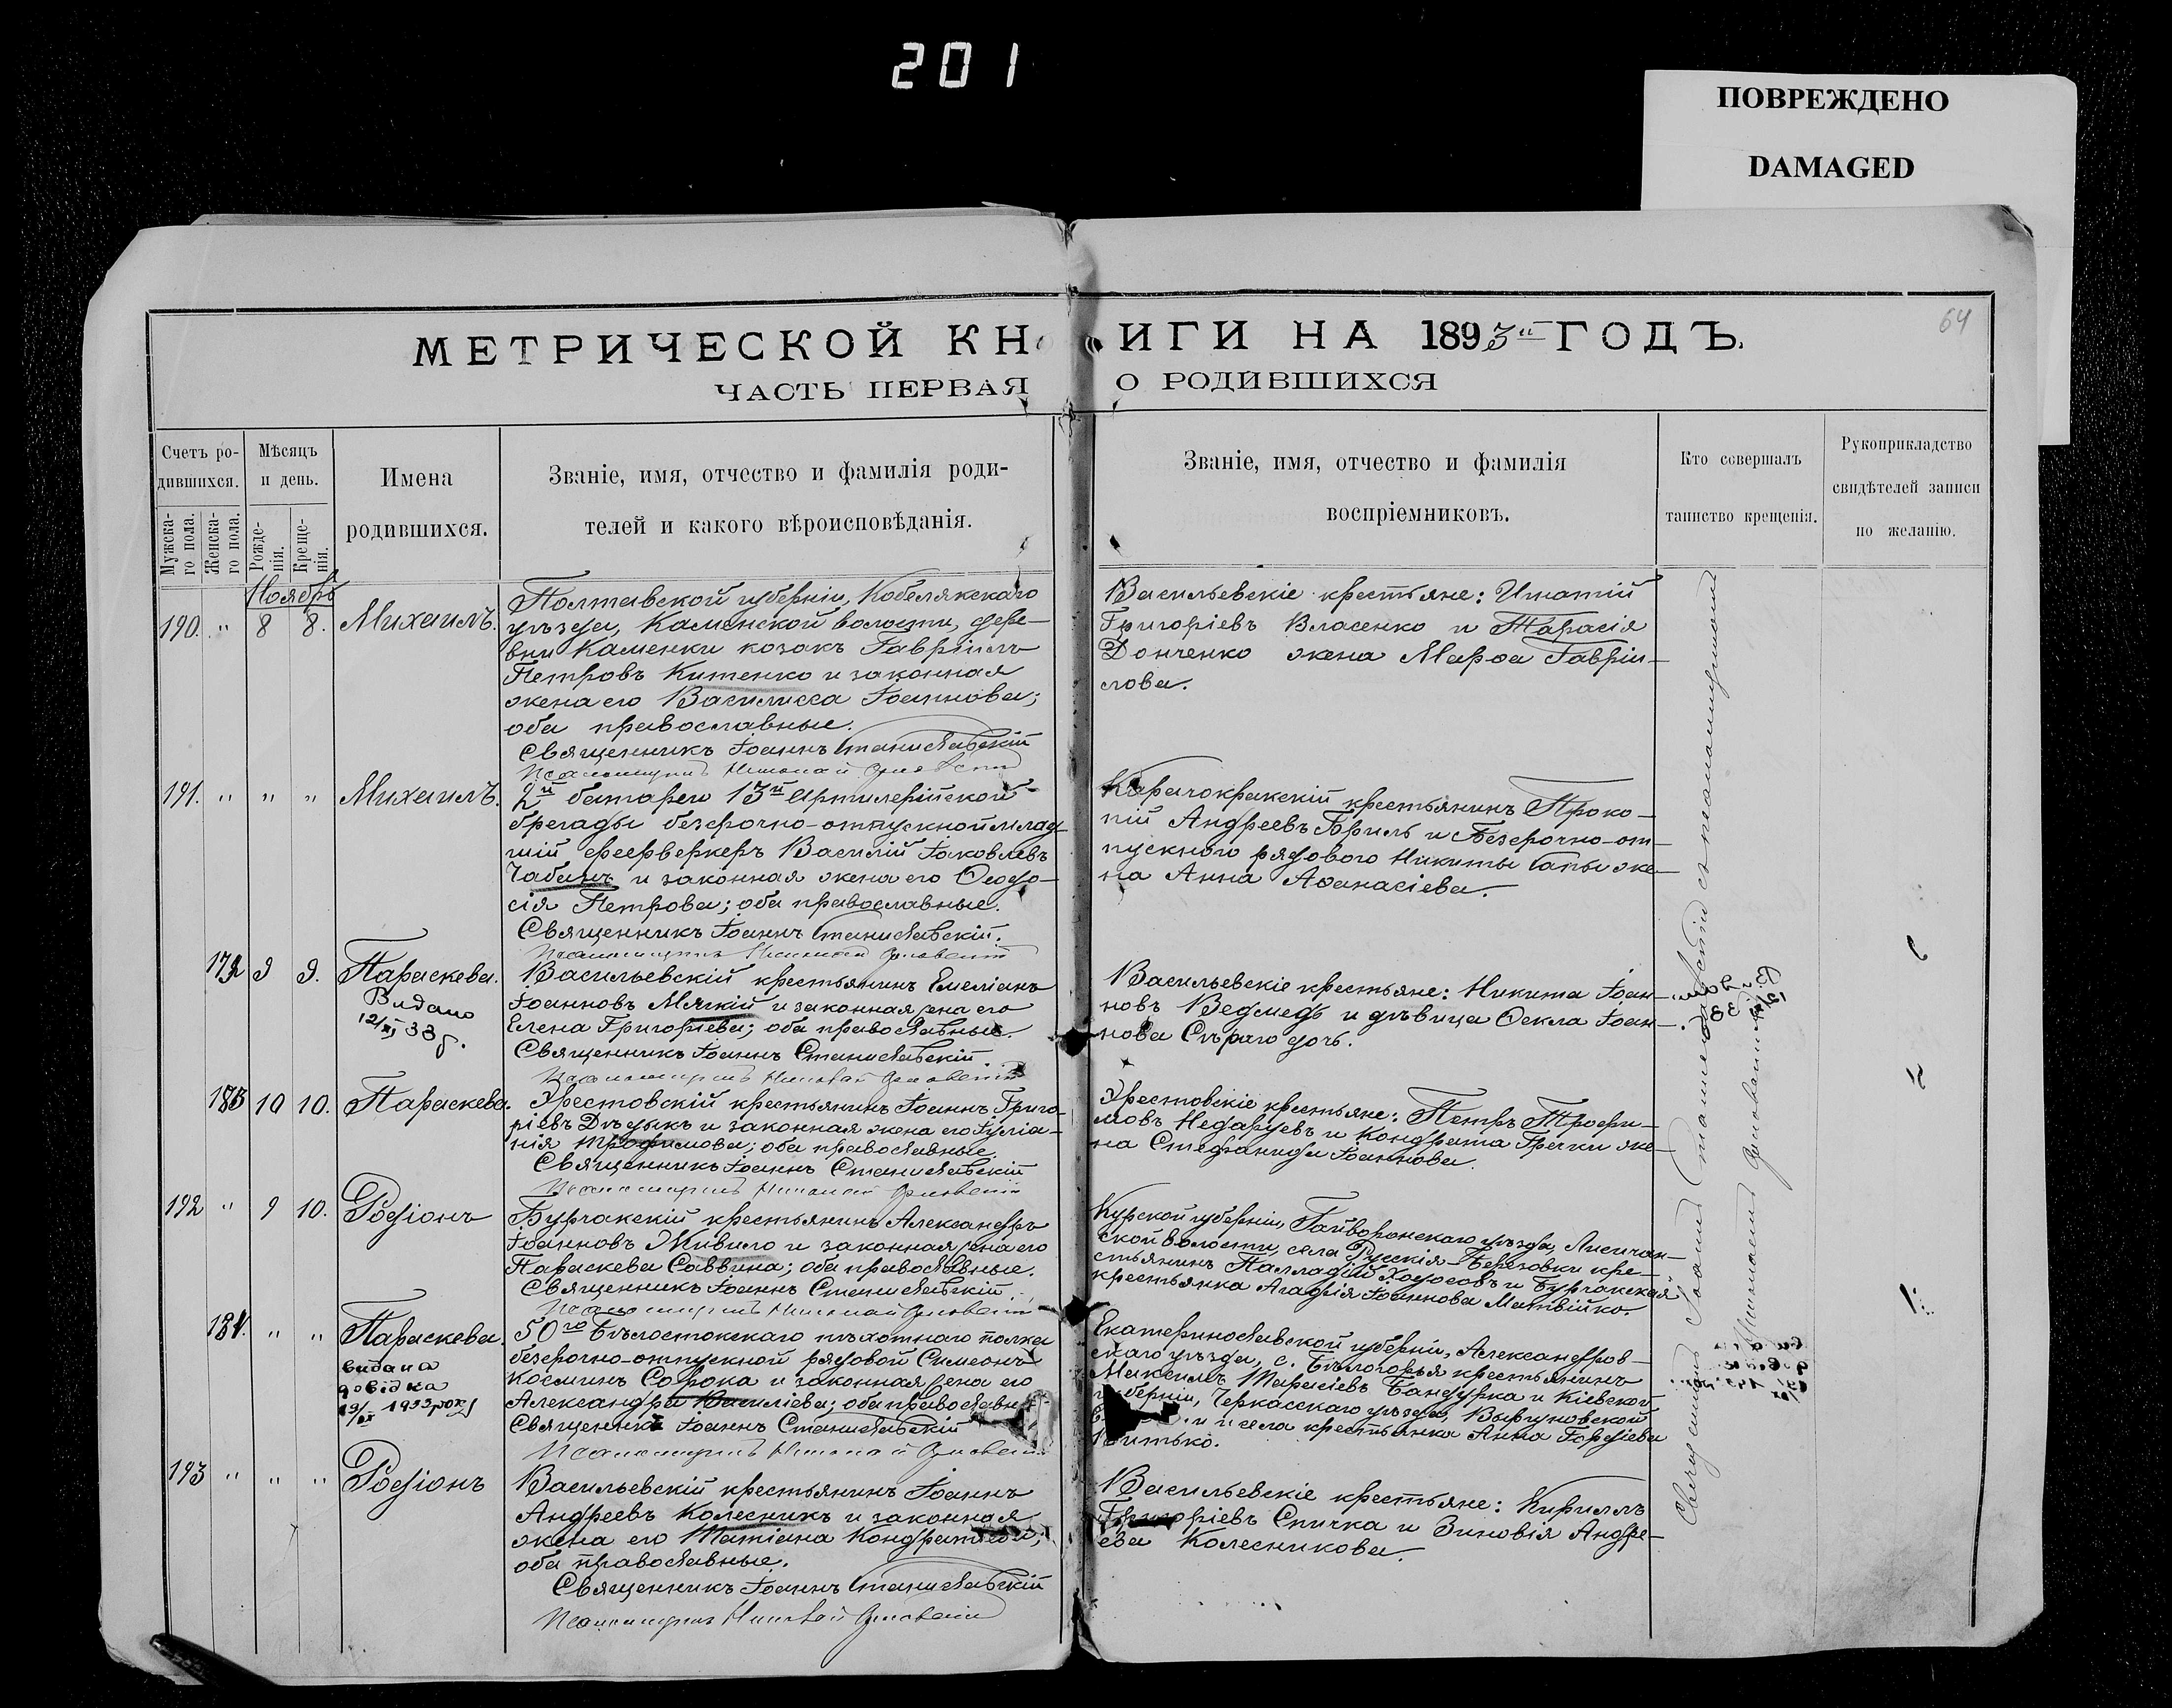 201
ПОВРЕЖДЕНО
DAMAGED
64
МЕТРИЧЕСКОЙ КНИГИ НА 1893й ГОДЪ.
ЧАСТЬ ПЕРВАЯ О РОДИВШИХСЯ
Счетъ ро-
дившихся.
Мужска-
го пола.
Женска-
го пола.
Мѣсяцъ
и день.
Рожде-
нія.
Креще-
нія.
Имена
родившихся.
Званіе, имя, отчество и фамилія роди-
телей и какого вѣроисповѣданія.
Званіе, имя, отчество и фамилія
воспріемниковъ.
Кто совершалъ
таинство крещенія.
Рукоприкладство
свидѣтелей записи
по желанію.
Ноябрь
190. " 8 8. Михаилъ.
Полтавской губерніи, Кобелякскаго
уѣзда, Каменской волости, дере-
вни Каменки козакъ Гавріилъ
Петровъ Китенко и законная
жена его Василисса Іоаннова;
оба православные.
Священникъ Іоаннъ Станиславскій
Псаломщикъ Николай
Васильевскіе крестьяне: Игнатій
Григоріевъ Власенко и Тарасія
Донченко жена Марѳа Гавріи-
лова.
191. " " " Михаилъ.
2й батареи 13й Артилерійской
брегады безсрочно-отпускной млад-
шій феерверкеръ Василій Іаковлевъ
Чабанъ и законная жена его Ѳеодо-
сія Петрова; оба православные.
Священникъ Іоаннъ Станиславскій.
Псаломщикъ Николай
Карачокракскій крестьянинъ Проко-
пій Андреевъ Бриль и Безсрочно-от-
пускного рядового Никиты Гапы же-
на Анна Аѳанасіева.
179. 9 9. Параскева.
Видано
12/XI 33 р.
Васильевскій крестьянинъ Емеліанъ
Іоанновъ Мягкій и законная жена его
Елена Григоріева; оба православные.
Священникъ Іоаннъ Станиславскій.
Псаломщикъ Николай
Васильевскіе крестьяне: Никита Іоан-
новъ Ведмедь и дѣвица Ѳекла Іоан-
нова Сѣраго дочь.
180 10 10. Параскева.
Хрестовскій крестьянинъ Іоаннъ Григо-
ріевъ Дѣдыкъ и законная жена его Іуліа-
нія Трофимова; оба православные.
Священникъ Іоаннъ Станиславскій
Псаломщикъ Николай
Хрестовскіе крестьяне: Петръ Трофи-
мовъ и Кондрата Гречки же-
на Стефанида Іоаннова.
192 " 9 10. Родіонъ
Бурчакскій крестьянинъ Александръ
Іоанновъ Живило и законная жена его
Параскева Саввина; оба православные.
Священникъ Іоаннъ Станиславскій.
Псаломщикъ Николай
Курской губерніи, Гайворонскаго уѣзда, Лисичан-
ской волости, села Русскія-Березовки кре-
стьянинъ Палладій и Бурчакская
крестьянка Агафія Іоаннова Матвійко.
181. " " Параскева.
видана
довідка
19/IX 1933 року
50го Бѣлостокскаго пѣхотнаго полка
безсрочно-отпускной рядовой Симеонъ
Косминъ Сорока и законная жена его
Александра Василіева; оба православные
Священникъ Іоаннъ Станиславскій
Псаломщикъ Николай
Екатеринославской губерніи, Александров-
скаго уѣзда, с. Бѣлогорья крестьянинъ
Максимъ Тарасіевъ Бандурка и Кіевской
губерніи, Черкасскаго уѣзда,
и села крестьянка Анна Гордіева
193 " " " Родіонъ
Васильевскій крестьянинъ Іоаннъ
Андреевъ Колесникъ и законная
жена его Татіана Кондратіева;
оба православные.
Священникъ Іоаннъ Станиславскій
Псаломщикъ Николай
Васильевскіе крестьяне: Кириллъ
Григоріевъ Спичка и Зиновія Андре-
ева Колесникова.
Священникъ Іоаннъ Станиславскій съ псаломщикомъ
Николаемъ